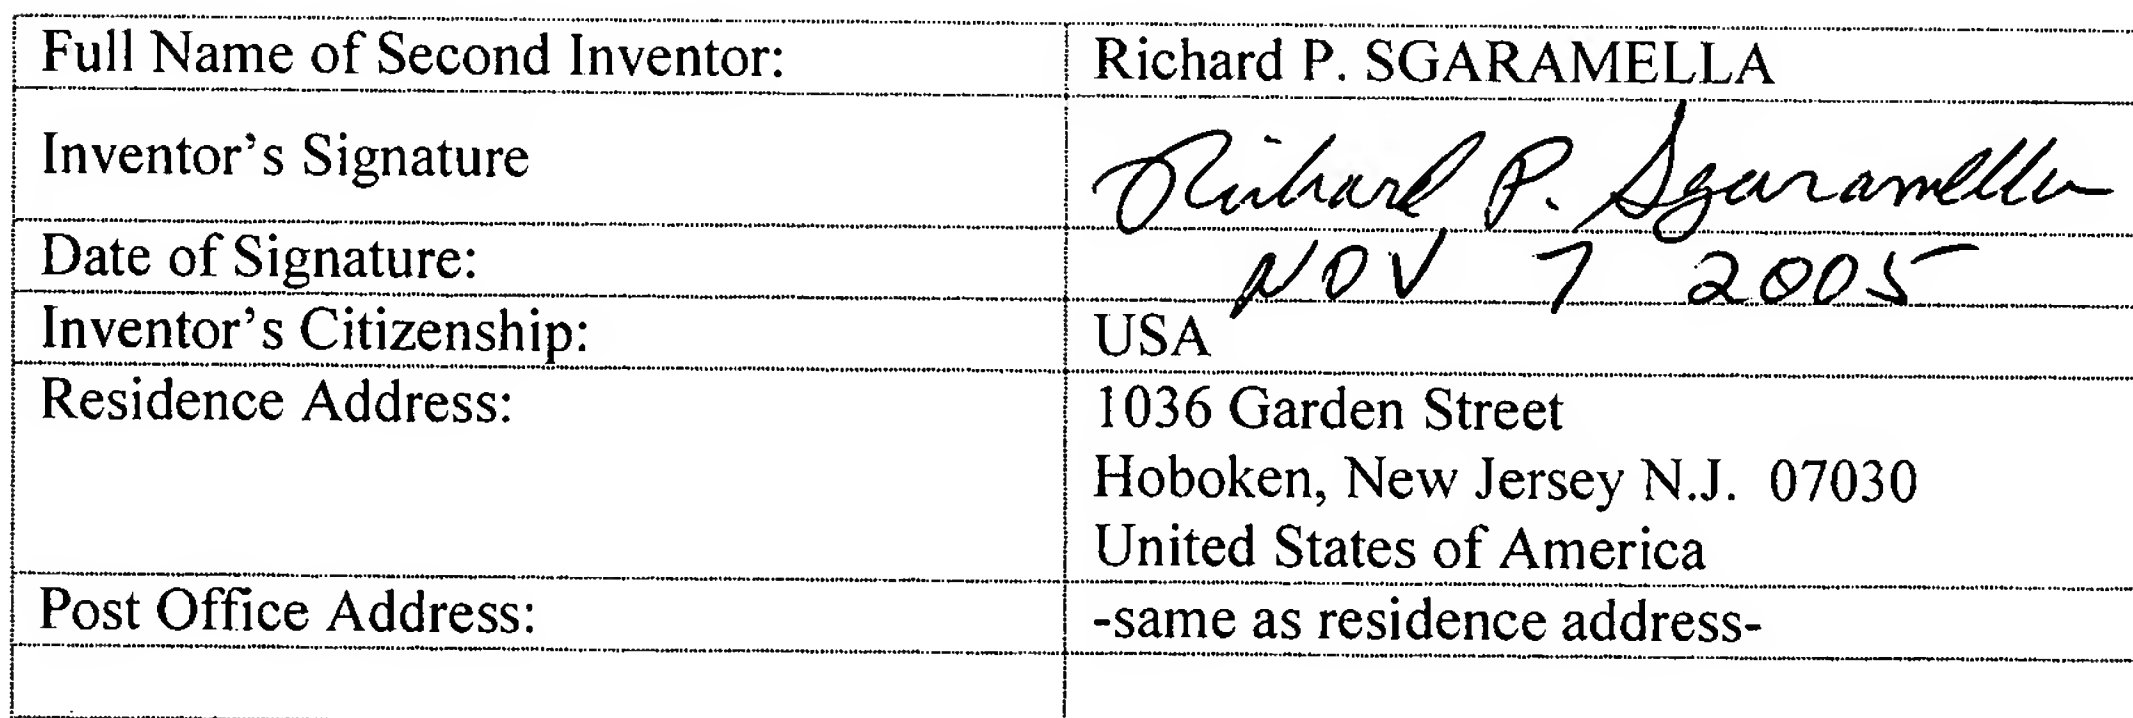 Full Name of Second Inventor: Richard P. SGARAMELLA
Inventor's Signature Richard P. Sgaramella
Date of Signature: NOV 7 2005
Inventor's Citizenship: USA
Residence Address: 1036 Garden Street
Hoboken, New Jersey N.J. 07030
United States of America
Post Office Address: -same as residence address-